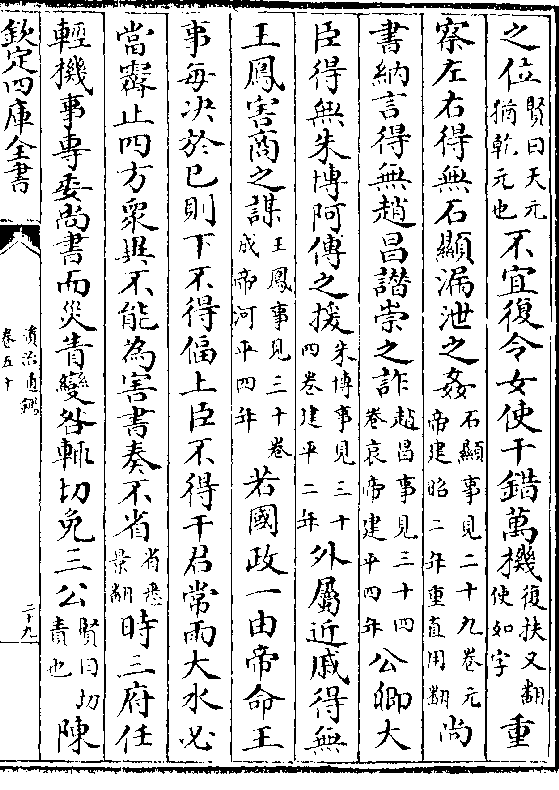 之位賢曰天元猶乾元也不宜復令女使干錯萬機復扶又翻使如字重
察左右得無石顯漏泄之姦石顯事見二十九卷元帝建昭二年重直用翻尚
書納言得無趙昌譖崇之詐趙昌事見三十四卷哀帝建平四年公卿大
臣得無朱博阿傅之援朱博事見三十四卷建平二年外屬近戚得無
王鳳害商之謀王鳳事見三十卷成帝河平四年若國政一由帝命王
事每决於已則下不得偪上臣不得干君常雨大水必
當霽止四方衆異不能為害書奏不省省悉景翻時三府任
輕機事專委尚書而災眚變咎輒切免三公賢曰切責也陳
欽定四庫全書
資治通鑑
卷五十
二十九